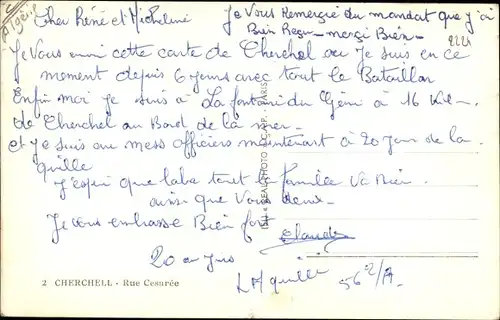 Algérie
Cher Réné et Micheline
Je Vous Remergie du mandat que j'ai
Bien Reçu - merçi Bien -
Je Vous envoi cette carte de Cherchel ou Je suis en ce
moment depuis 6 jours avec tout le Bataillon
Enfin moi Je suis à La fontaine du Géni à 16 Km -
de Cherchel au Bord de la mer -
et Je suis au mess officiers maintenant à 20 Jour de la
quille
J'espèr que laba tout la famille Va Bien -
ainsi que Vous deux -
Je vous embrasse Bien fort
Claude
20 au Jus
La quille 56 2/A.
2 CHERCHELL - Rue Cesarée